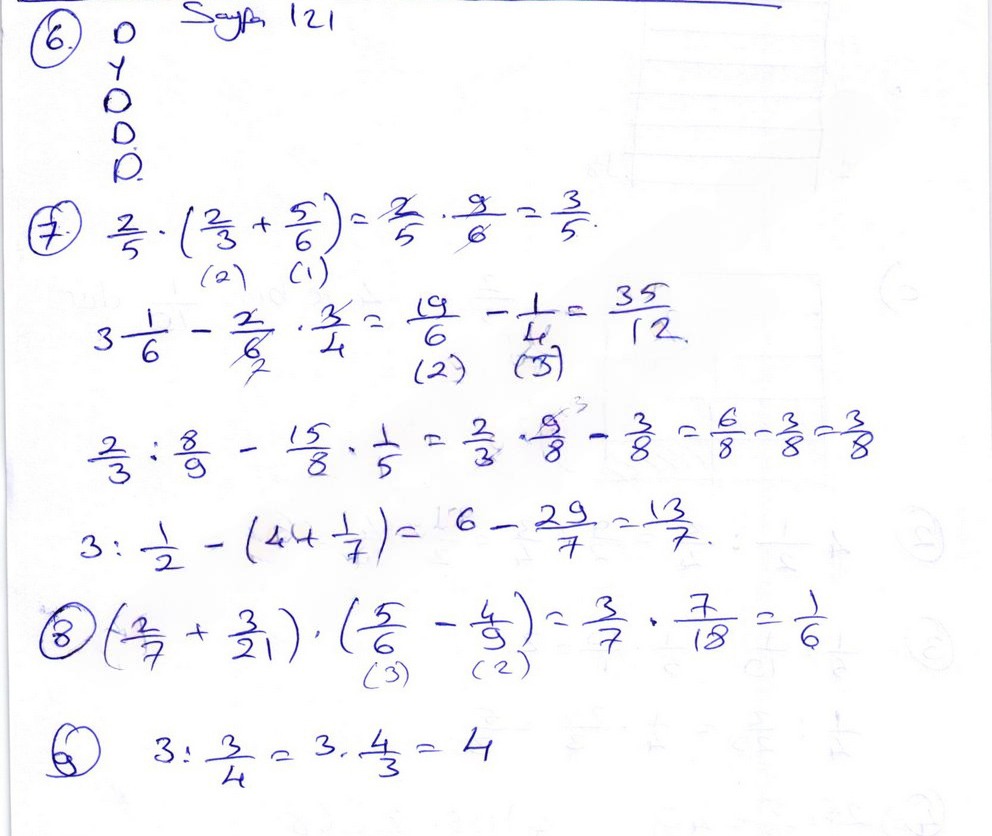 6. D Sayfa 121
Y
D
D.
D.
7. 2/5 · (2/3 + 5/6) = 2/5 · 9/6 = 3/5.
(2) (1)
3 1/6 - 2/6 · 3/4 = 19/6 - 1/4 = 35/12.
2 (2) (3)
2/3 : 8/9 - 15/8 · 1/5 = 2/3 · 9/8 3 - 3/8 = 6/8 - 3/8 = 3/8
3 : 1/2 - (4 + 1/7) = 6 - 29/7 = 13/7.
8 (2/7 + 3/21) · (5/6 - 4/9) = 3/7 · 7/18 = 1/6
(3) (2)
9 3 : 3/4 = 3 · 4/3 = 4